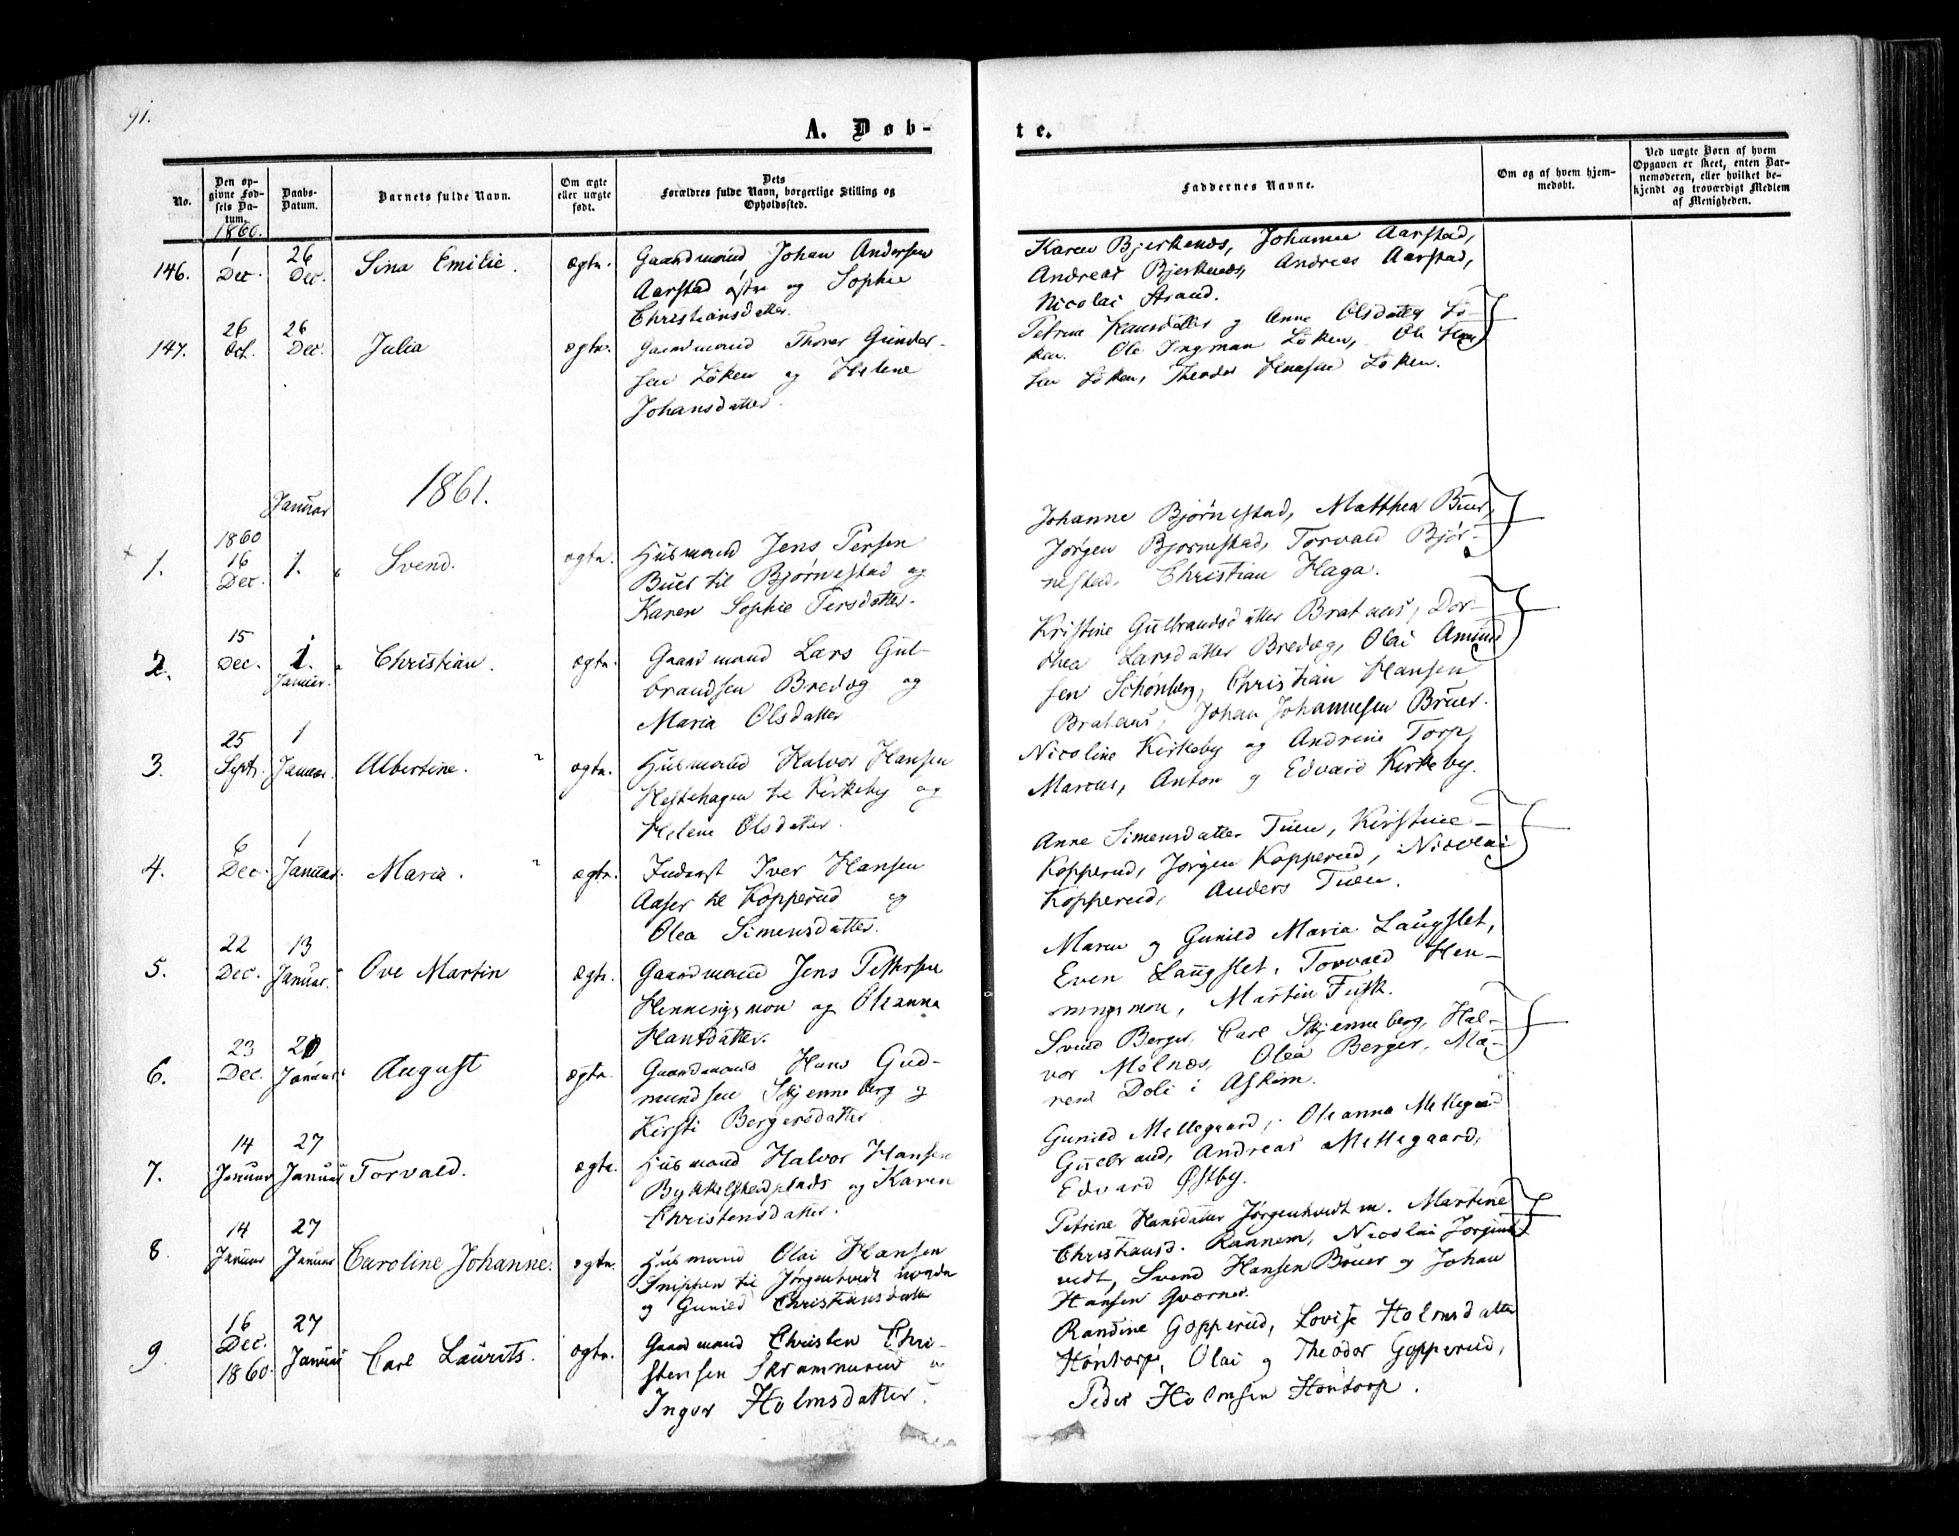 91.
A. Døb-
te.
No.
Den op-
givne Fød-
sels Da-
tum.
Daabs-
Datum.
Barnets fulde Navn.
Om ægte
eller uægte
født.
Dets
Forældres fulde Navn, borgerlige Stilling og
Opholdssted.
Faddernes Navne.
Om og af hvem hjem-
medøbt.
Ved uægte Børn af hvem
Opgaven er skeet, enten Bar-
nemoderen, eller hvilket be-
kjendt og troværdigt Medlem
af Menigheden.
1860.
146.
1
Dec.
26
Dec.
Sina Emilie.
ægte.
Gaardmand Johan Andersen
Aarstad østre og Sophie
Christiansdatter.
Karen Bjerkenæs, Johanne Aarstad,
Andreas Bjerkenæs, Andreas Aarstad,
Nicolai Strand.
147.
26
Oct.
26
Dec.
Julia
ægte.
Gaardmand Thorer Gunder-
sen Løken og Helene
Johansdatter.
Petrine Hansdatter og Anne Olsdatter Lø-
ken. Ole Ingman Løken, Ole Han
sen Løken, Theodor Hansen Løken.
1861.
Januar
1.
1860
16
Dec.
1.
Svend.
ægte.
Husmand Jens Persen
Buet til Bjørnestad og
Karen Sophie Persdatter.
Johanne Bjørnestad, Matthea Buer,
Jørgen Bjørnestad, Torvald Bjør-
nestad, Christian Haga.
2.
15
Dec.
1.
Januar.
Christian.
ægte.
Gaardmand Lars Gul-
brandsen Bredog og
Maria Olsdatter
Kristine Gulbrandsdatter Brataas, Dor-
thea Larsdatter Bredog, Olai Amund
sen Schønberg, Christian Hansen
Brataas, Johan Johannesen Bruer.
3.
25
Sept.
1
Januar.
Albertine.
ægte.
Husmand Halvor Hansen
Hestehagen til Kirkeby og
Helene Olsdatter.
Nicoline Kirkeby og Andrine Torp,
Marcus, Anton og Edvard Kirkeby.
4.
6
Dec.
1
Januar.
Maria.
ægte.
Inderst Iver Hansen
Aaser til Kopperud og
Olea Simensdatter.
Anne Simensdatter Tuen, Kirstine
Kopperud, Jørgen Kopperud, Nicolai
Kopperud, Anders Tuen.
5.
22
Dec.
13
Januar.
Ove Martin
ægte.
Gaardmand Jens Pettersen
Henningsmon og Oleanna
Hansdatter.
Maren og Gunild Maria Laugslet,
Even Laugslet, Torvald Hen-
ningsmon, Martin Fusk.
6.
23
Dec.
20
Januar
August
ægte.
Gaardmand Hans Gud-
mundsen Skjenneberg og
Kirsti Bergersdatter
Svend Berger, Carl Skjenneberg, Hal-
vor Molnæs, Olea Berger, Ma-
ren Doli i Askim.
7.
14
Januar
27
Januar
Torvald.
ægte.
Husmand Halvor Hansen
og Karen
Christensdatter.
Gunild Mellegaard, Oleanna Mellegaard
Gulbrand, Andreas Mellegaard,
Edvard Østby.
8.
14
Januar
27
Januar
Caroline Johanne.
ægte.
Husmand Olai Hansen
Snippen til Jørgenhvedt nordre
og Gunild Christiansdatter
Petrine Hansdatter Jørgenhvedt m. Martine
Christiansd. Rannem, Nicolai Jørgenh
vedt, Svend Hansen Bruer og Johan
Hansen Qværner.
9.
16
Dec.
1860.
27
Januar
Carl Laurits.
ægte.
Gaardmand Christen Chri-
stensen Skrammerud og
Inger Holmsdatter.
Randine Gopperud, Lovise Holmsdatter
Hontorp, Olai og Theodor Gopperud,
Peder Holmsen Hontorp.